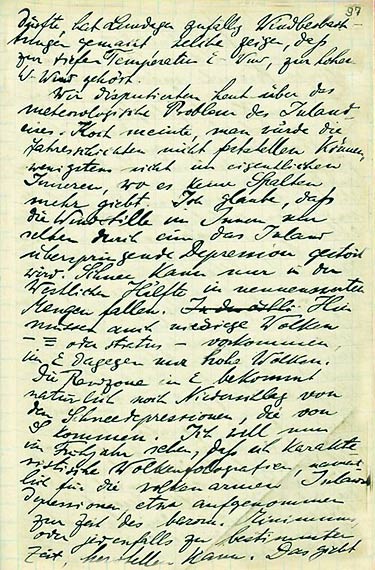 97
dürfte, hat Lundager zufällig Windbeobach-
tungen gemacht welche zeigen, daß
zur tiefen Temperatur E-Wind, zur hohen
W-Wind gehört.
Wir disputierten heut über das
meteorologische Problem des Inland-
eises. Koch meinte, man würde die
Jahresschichten nicht feststellen können,
wenigstens nicht im eigentlichen
Inneren, wo es keine Spalten
mehr giebt. Ich glaube, daß
die Windstille im Innern nur
selten durch eine das Inland
überspringende Depression gestört
wird. Schnee kann nur in der
Westlichen Hälfte in nennenswerten
Mengen fallen. In der östli. Hier
müssen auch niedrige Wolken
- oder stratus - vorkommen,
im E dagegen nur hohe Wolken.
Die Randzone in E bekommt
natürlich noch Niederschlag von
den Schneedepressionen, die von
S kommen. Ich will nun
im Frühjahr sehen, daß ich karakte
ristische Wolkenfotografien, nament
lich für die wolkenarmen Inland
depressionen, etwa aufgenommen
zur Zeit des barom. Minimums
oder jedenfalls zu bestimmter
Zeit, herstellen kann. Das giebt